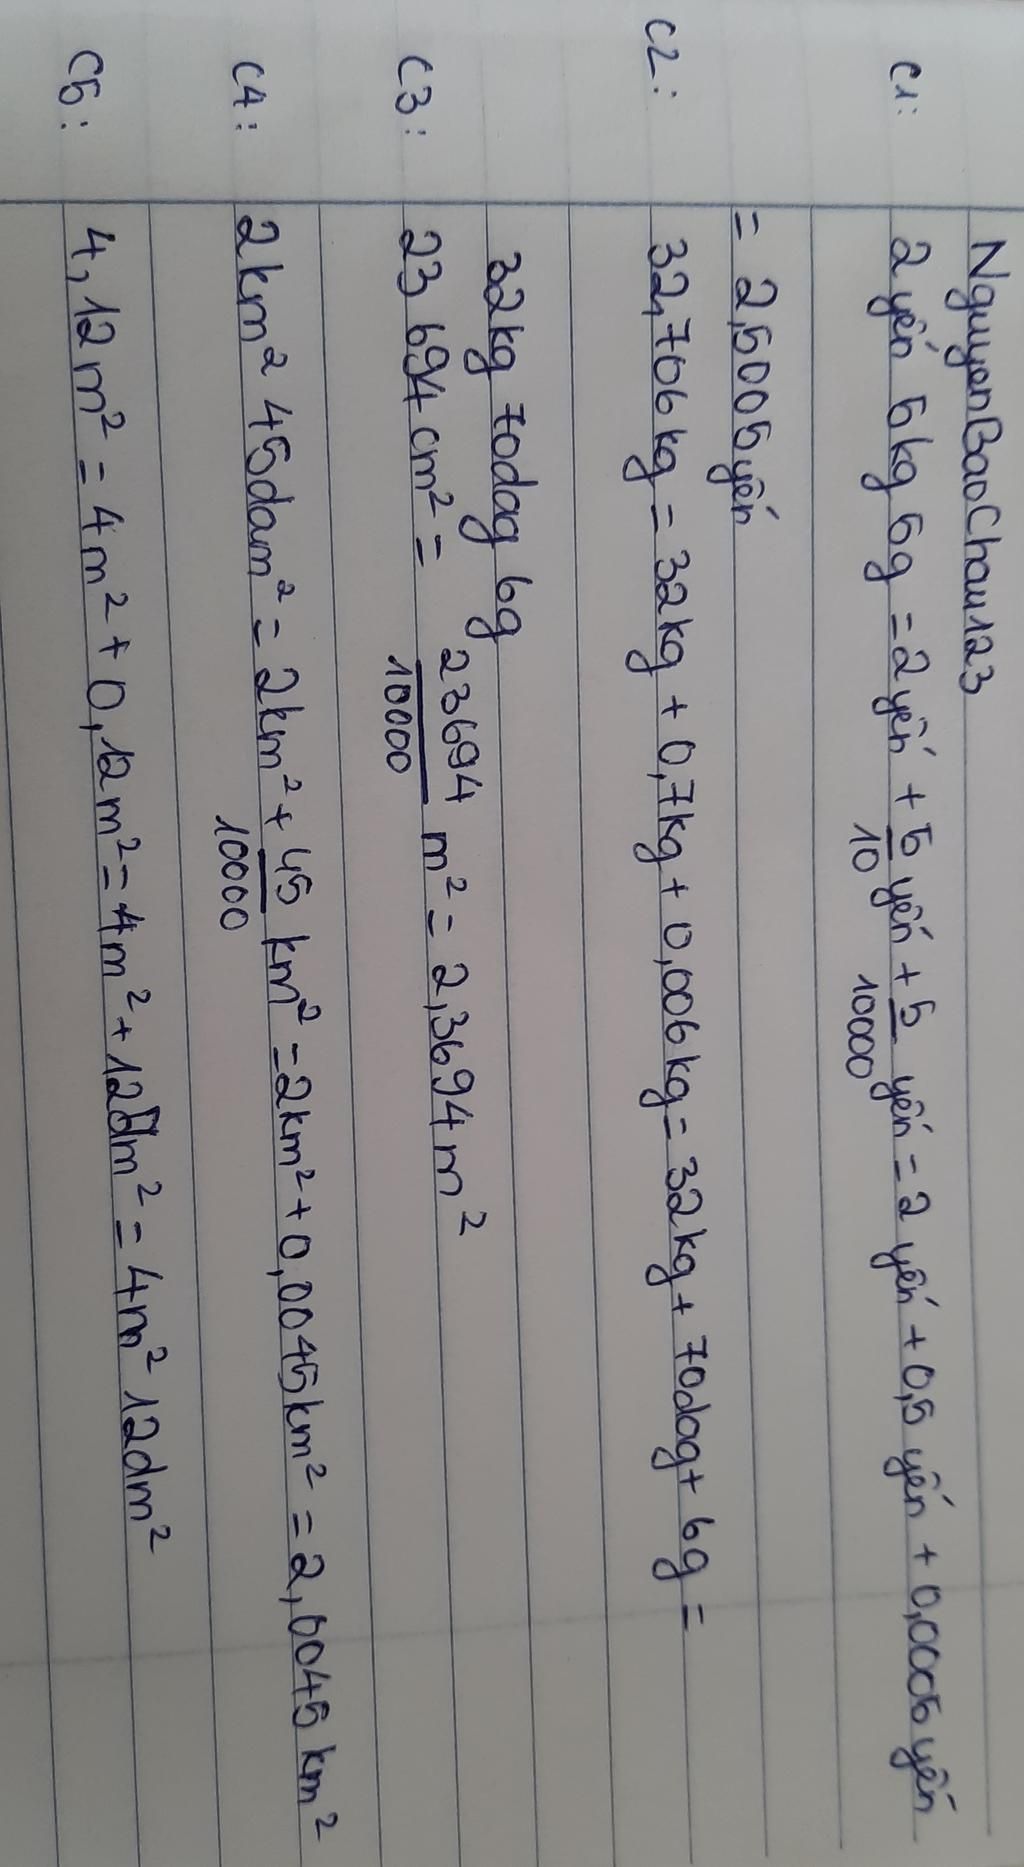 NguyenBaoChau123
C1: 2 yến 5kg 5g = 2 yến + 5/10 yến + 5/10000 yến = 2 yến + 0,5 yến + 0,0005 yến
= 2,5005 yến
C2: 32,706 kg = 32kg + 0,7kg + 0,006 kg = 32kg + 70dag + 6g =
32kg 70dag 6g
C3: 23 694 cm² = 23694/10000 m² = 2,3694 m²
C4: 2km² 45dam² = 2km² + 45/10000 km² = 2km² + 0,0045km² = 2,0045 km²
C5: 4,12m² = 4m² + 0,12m² = 4m² + 12dm² = 4m² 12dm²